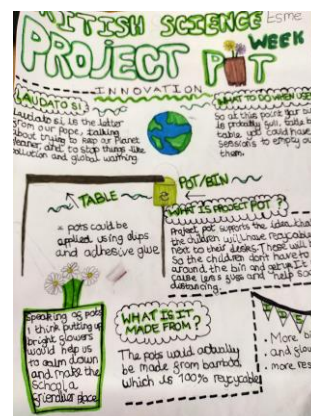 BRITISH SCIENCE
Esme
WEEK
PROJECT POT
INNOVATION
LAUDATO SI
Laudato si is the letter
from our pope, talking
about trying to keep our Planet
cleaner, and to stop things like
pollution and global warming
WHAT TO DO WHEN
So at this point your
is probably full,
table, you could have
sessions to empty
them.
TABLE
POT/BIN
× pots could be
applied using clips
and adhesive glue
WHAT IS PROJECT POT ?
Project pot supports the idea that
the children will have recycable
next to their desks. Those will
So the children don't have to
around the bin and
cause less fuss and help
distancing.
Speaking of pots
I think putting up
bright flowers
would help us
to calm down
and make the
school a
friendlier place
WHAT IS IT
MADE FROM ?
The pots would actually
be made from bamboo
which is 100% recyclable
• More
and
• more